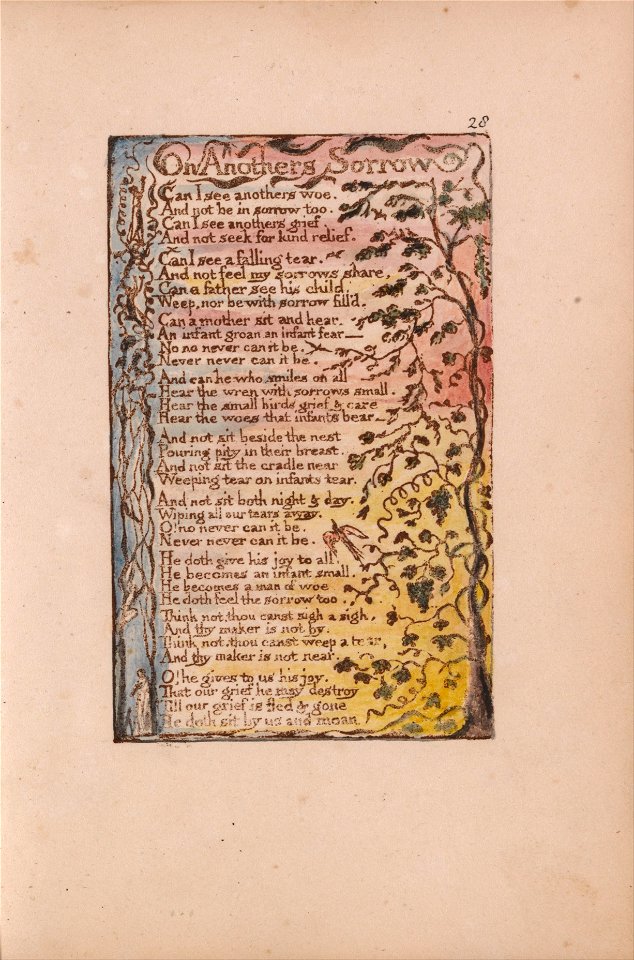 28
On Anothers Sorrow
Can I see anothers woe.
And not be in sorrow too.
Can I see anothers grief.
And not seek for kind relief.
Can I see a falling tear.
And not feel my sorrows share,
Can a father see his child.
Weep, nor be with sorrow fill'd.
Can a mother sit and hear.
An infant groan an infant fear—
No no never can it be.
Never never can it be.
And can he who smiles on all
Hear the wren with sorrows small.
Hear the small birds grief & care
Hear the woes that infants bear—
And not sit beside the nest
Pouring pity in their breast.
And not sit the cradle near
Weeping tear on infants tear.
And not sit both night & day.
Wiping all our tears away.
O! no never can it be.
Never never can it be.
He doth give his joy to all.
He becomes an infant small.
He becomes a man of woe
He doth feel the sorrow too.
Think not, thou canst sigh a sigh,
And thy maker is not by.
Think not, thou canst weep a tear,
And thy maker is not near.
O! he gives to us his joy.
That our grief he may destroy
Till our grief is fled & gone
He doth sit by us and moan